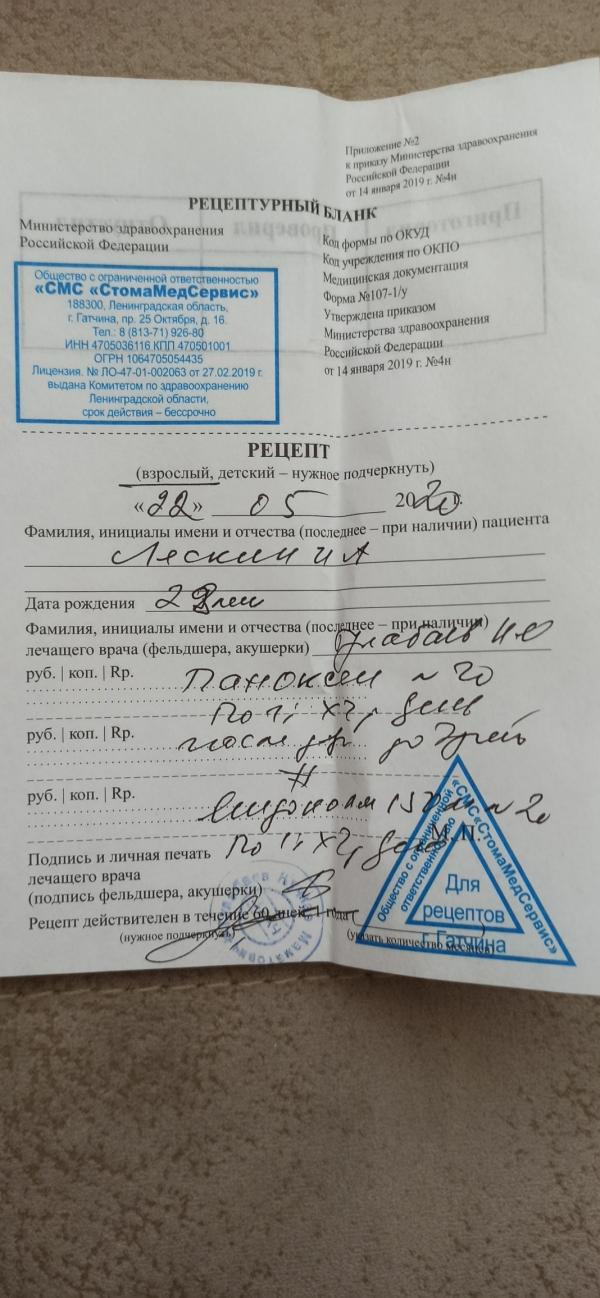 Приложение №2
к приказу Министерства здравоохранения
Российской Федерации
от 14 января 2019 г. №4н
РЕЦЕПТУРНЫЙ БЛАНК
Министерство здравоохранения
Российской Федерации
Код формы по ОКУД
Код учреждения по ОКПО
Медицинская документация
Форма №107-1/у
Утверждена приказом
Министерства здравоохранения
Российской Федерации
от 14 января 2019 г. №4н
Общество с ограниченной ответственностью
«СМС «СтомаМедСервис»
188300, Ленинградская область,
г. Гатчина, пр. 25 Октября, д. 16.
Тел.: 8 (813-71) 926-80
ИНН 4705036116 КПП 470501001
ОГРН 1064705054435
Лицензия. № ЛО-47-01-002063 от 27.02.2019 г.
выдана Комитетом по здравоохранению
Ленинградской области,
срок действия – бессрочно
РЕЦЕПТ
(взрослый, детский – нужное подчеркнуть)
«22» 05 2020 г.
Фамилия, инициалы имени и отчества (последнее – при наличии) пациента
И А
Дата рождения
Фамилия, инициалы имени и отчества (последнее – при наличии)
лечащего врача (фельдшера, акушерки)
руб. | коп. | Rp. ~ 20
По
руб. | коп. | Rp. после
#
руб. | коп. | Rp. ~ 20
М.П.
Подпись и личная печать По
лечащего врача
(подпись фельдшера, акушерки)
Рецепт действителен в течение 60 дней, 1 года (
(нужное подчеркнуть) (указать количество месяцев)
Общество с ограниченной ответственностью «СМС «СтомаМедСервис»
Для
рецептов
г. Гатчина